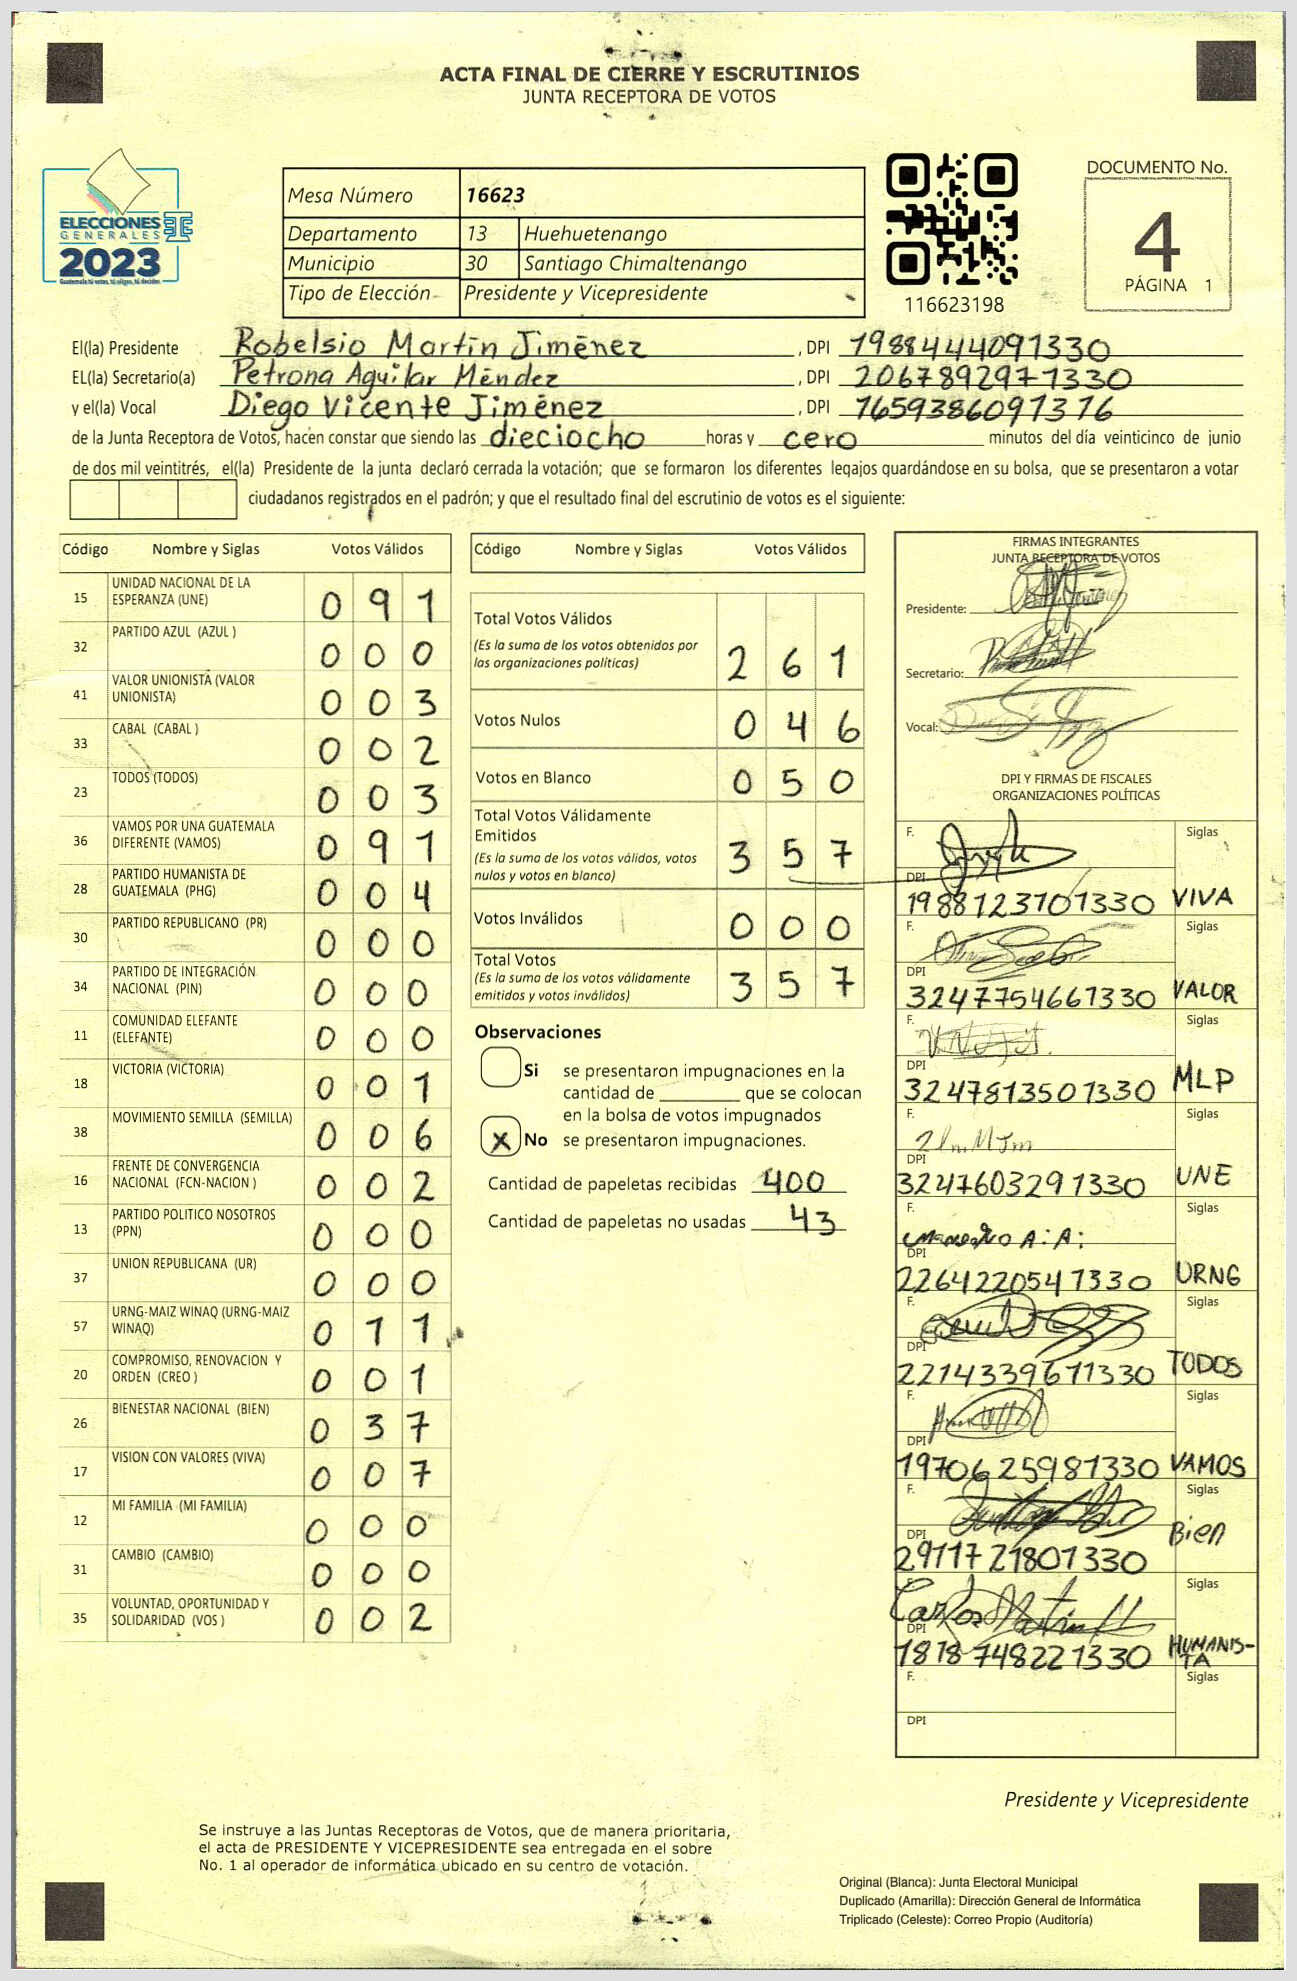 ACTA FINAL DE CIERRE Y ESCRUTINIOS
JUNTA RECEPTORA DE VOTOS
ELECCIONES
GENERALES
2023
Guatemala tú votas, tú eliges, tú decides
Mesa Número 16623
Departamento 13 Huehuetenango
Municipio 30 Santiago Chimaltenango
Tipo de Elección Presidente y Vicepresidente
116623198
DOCUMENTO No.
4
PÁGINA 1
El(la) Presidente Robelsio Martín Jiménez, DPI 1988444091330
EL(la) Secretario(a) Petrona Aguilar Méndez, DPI 2067892971330
y el(la) Vocal Diego Vicente Jiménez, DPI 1659386091316
de la Junta Receptora de Votos, hacen constar que siendo las dieciocho horas y cero minutos del día veinticinco de junio
de dos mil veintitrés, el(la) Presidente de la junta declaró cerrada la votación; que se formaron los diferentes legajos guardándose en su bolsa, que se presentaron a votar
ciudadanos registrados en el padrón; y que el resultado final del escrutinio de votos es el siguiente:
Código Nombre y Siglas Votos Válidos
15 UNIDAD NACIONAL DE LA ESPERANZA (UNE) 091
32 PARTIDO AZUL (AZUL ) 000
41 VALOR UNIONISTA (VALOR UNIONISTA) 003
33 CABAL (CABAL ) 002
23 TODOS (TODOS) 003
36 VAMOS POR UNA GUATEMALA DIFERENTE (VAMOS) 091
28 PARTIDO HUMANISTA DE GUATEMALA (PHG) 004
30 PARTIDO REPUBLICANO (PR) 000
34 PARTIDO DE INTEGRACIÓN NACIONAL (PIN) 000
11 COMUNIDAD ELEFANTE (ELEFANTE) 000
18 VICTORIA (VICTORIA) 001
38 MOVIMIENTO SEMILLA (SEMILLA) 006
16 FRENTE DE CONVERGENCIA NACIONAL (FCN-NACION ) 002
13 PARTIDO POLITICO NOSOTROS (PPN) 000
37 UNION REPUBLICANA (UR) 000
57 URNG-MAIZ WINAQ (URNG-MAIZ WINAQ) 011
20 COMPROMISO, RENOVACION Y ORDEN (CREO ) 001
26 BIENESTAR NACIONAL (BIEN) 037
17 VISION CON VALORES (VIVA) 007
12 MI FAMILIA (MI FAMILIA) 000
31 CAMBIO (CAMBIO) 000
35 VOLUNTAD, OPORTUNIDAD Y SOLIDARIDAD (VOS ) 002
Código Nombre y Siglas Votos Válidos
Total Votos Válidos
(Es la suma de los votos obtenidos por las organizaciones políticas) 261
Votos Nulos 046
Votos en Blanco 050
Total Votos Válidamente Emitidos
(Es la suma de los votos válidos, votos nulos y votos en blanco) 357
Votos Inválidos 000
Total Votos
(Es la suma de los votos válidamente emitidos y votos inválidos) 357
Observaciones
Si se presentaron impugnaciones en la
cantidad de ________ que se colocan
en la bolsa de votos impugnados
X No se presentaron impugnaciones.
Cantidad de papeletas recibidas 400
Cantidad de papeletas no usadas 43
FIRMAS INTEGRANTES
JUNTA RECEPTORA DE VOTOS
Presidente:
Secretario:
Vocal:
DPI Y FIRMAS DE FISCALES
ORGANIZACIONES POLÍTICAS
F. Siglas
DPI 1988123701330 VIVA
F. Siglas
DPI 3247754661330 VALOR
F. Siglas
DPI 3247813501330 MLP
F. Siglas
DPI 3247603291330 UNE
F. A: A: Siglas
DPI 2264220541330 URNG
F. Siglas
DPI 2214339671330 TODOS
F. Siglas
DPI 1970625981330 VAMOS
F. Siglas
DPI 2911721801330 Bien
F. Carlos Martin Siglas
DPI 1818748221330 HUMANIS-
TA
F. Siglas
DPI
Presidente y Vicepresidente
Se instruye a las Juntas Receptoras de Votos, que de manera prioritaria,
el acta de PRESIDENTE Y VICEPRESIDENTE sea entregada en el sobre
No. 1 al operador de informática ubicado en su centro de votación.
Original (Blanca): Junta Electoral Municipal
Duplicado (Amarilla): Dirección General de Informática
Triplicado (Celeste): Correo Propio (Auditoría)